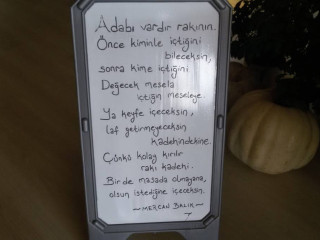 Adabı vardır rakının.
Önce kiminle içtiğini
bileceksin,
sonra kime içtiğini
Değecek mesela
içtiğin meseleye.
Ya keyfe içeceksin,
laf getirmeyeceksin
kadehindekine.
Çünkü kolay kırılır
rakı kadehi.
Bir de masada olmayana,
olsun istediğine içeceksin.
~MERCAN BALIK~